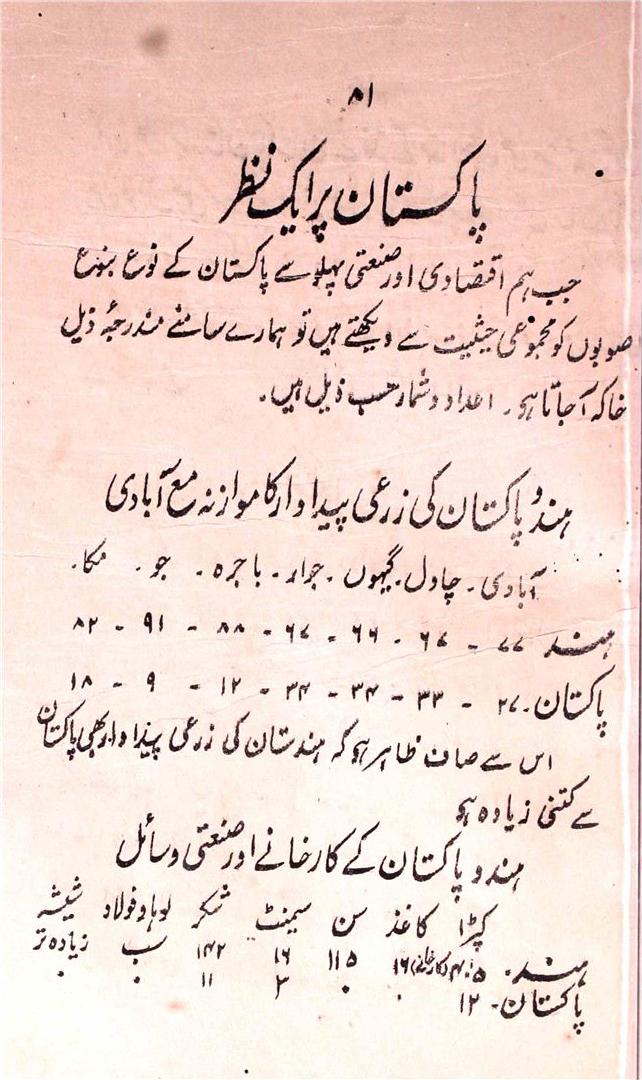 ۸۱
پاکستان پر ایک نظر
جب ہم اقتصادی اور صنعتی پہلو سے پاکستان کے نوع بنوع
صوبوں کو مجموعی حیثیت سے دیکھتے ہیں تو ہمارے سامنے مندرجۂ ذیل
خاکہ آجاتا ہی۔ اعداد و شمار حسب ذیل ہیں۔
ہند و پاکستان کی زرعی پیداوار کا موازنہ مع آبادی
آبادی۔ چاول۔ گیہوں۔ جوار۔ باجرہ۔ جو۔ مکا۔
ہند ۷۷ - ۶۷ - ۶۶ - ۶۷ - ۸۸ - ۹۱ - ۸۲
پاکستان۔ ۲۷ - ۳۳ - ۳۴ - ۳۴ - ۱۲ - ۹ - ۱۸
اس سے صاف ظاہر ہی کہ ہندستان کی زرعی پیداوار بھی پاکستان
سے کتنی زیادہ ہی
ہند و پاکستان کے کارخانے اور صنعتی وسائل
کپڑا کاغذ سن سیمنٹ شکر لوہا و فولاد شیشہ
ہند۔ (کارخانے) ۱۶ ۱۱۵ ۱۶ ۱۴۲ سب زیادہ تر
پاکستان۔ ۱۲ ۰ ۰ ۳ ۱۱ ۰ ۰